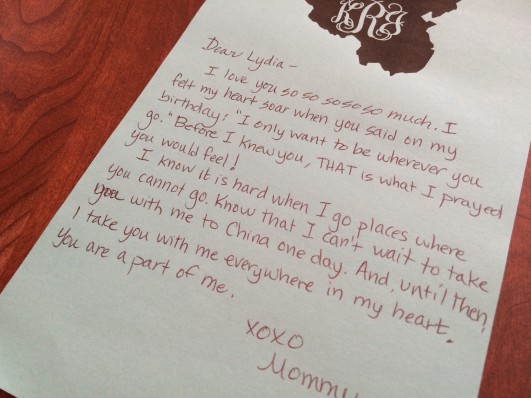 KRJ
Dear Lydia -
I love you so so so so so much. I
felt my heart soar when you said on my
birthday: "I only want to be wherever you
go." Before I knew you, THAT is what I prayed
you would feel!
I know it is hard when I go places where
you cannot go. Know that I can't wait to take
you with me to China one day. And, until then,
I take you with me everywhere in my heart.
You are a part of me.
XOXO
Mommy